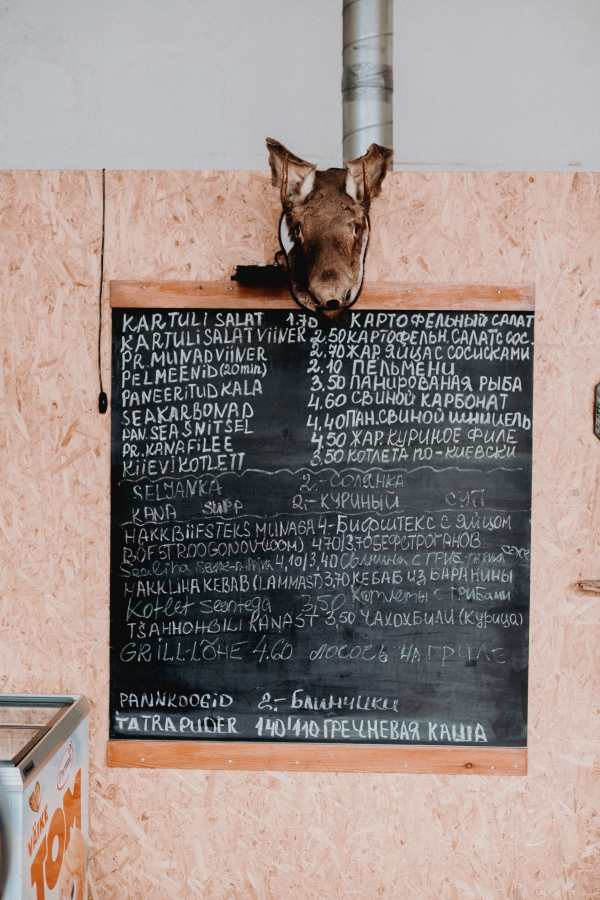 KARTULI SALAT 1.70 КАРТОФЕЛЬНЫЙ САЛАТ
KARTULI SALAT VIINER 2.50 КАРТОФЕЛЬН. САЛАТ С СОС.
PR. MUNAD VIINER 2.70 ЖАР. ЯЙЦА С СОСИСКАМИ
PELMEENID (20 min) 2.10 ПЕЛЬМЕНИ
PANEERITUD KALA 3.50 ПАНИРОВАНАЯ РЫБА
SEAKARBONAD 4.60 СВИНОЙ КАРБОНАТ
PAN. SEAŠNITSEL 4.40 ПАН. СВИНОЙ ШНИЦЕЛЬ
PR. KANAFILEE 4.50 ЖАР. КУРИНОЕ ФИЛЕ
KIIEVI KOTLETT 3.50 КОТЛЕТА ПО-КИЕВСКИ
SELYANKA 2.- СОЛЯНКА
KANA SUPP 2.- КУРИНЫЙ СУП
HAKKBIIFSTEKS MUNAGA 4- БИФШТЕКС С ЯЙЦОМ
BÖFSTROOGONOV (LOOM) 4.70/3.70 БЕФСТРОГАНОВ
Sealiha 4,10/3,40 Свинина с
HAKKLIHA KEBAB (LAMMAST) 3,70 КЕБАБ ИЗ БАРАНИНЫ
Kotlet seentega 3,50 Котлеты с грибами
TŠAHHOHBILI KANAST 3,50 ЧАХОХБИЛИ (КУРИЦА)
GRILL-LÕHE 4.60 лосось НА ГРИЛЕ
PANNKOOGID 2.- Блинчики
TATRAPUDER 140/110 ГРЕЧНЕВАЯ КАША
VÄIKE
TOM